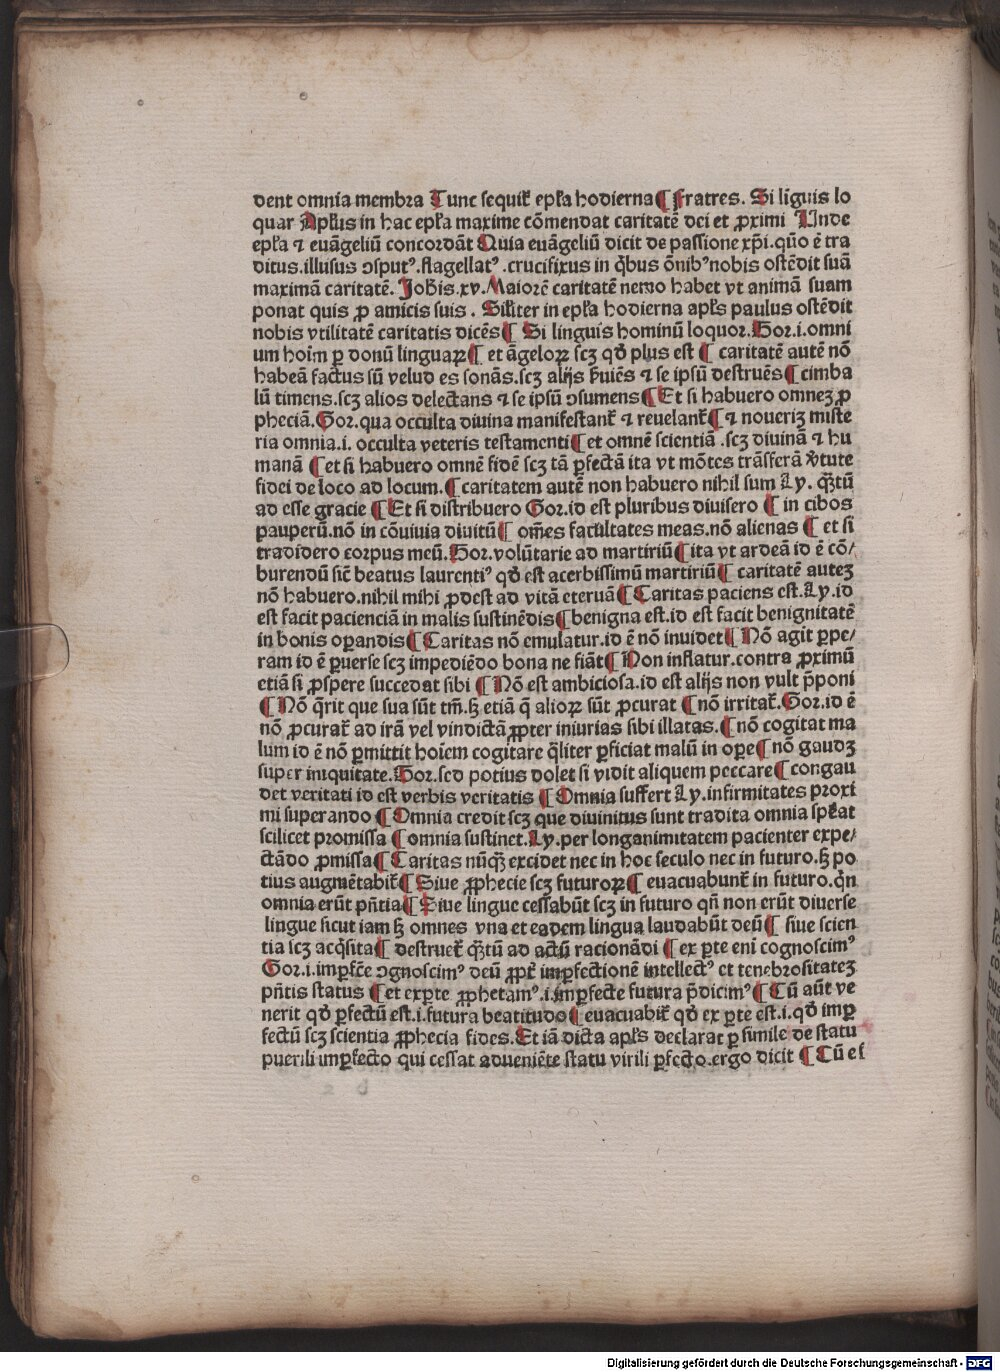 dent omnia membra Tunc sequit᷑ ep̄ła hodierna ¶ Fratres. Si līguis lo
quar Ap̄łus in hac ep̄ła maxime cōmendat caritatē dei et ꝓximi Unde
ep̄ła ⁊ euāgeliū concordāt Quia euāgeliū dicit de passione xp̄i.quō ē tra
ditus.illusus ɔsputꝰ.flagellatꝰ.crucifixus in q̄bus ōnibꝰ nobis ostēdit suā
maximā caritatē. Joh̄is.xv. Maiorē caritatē nemo habet vt animā suam
ponat quis ꝓ amicis suis. Siłiter in ep̄ła hodierna ap̄łs paulus ostēdit
nobis vtilitatē caritatis dicēs ¶ Si linguis hominū loquor.Gor.i.omni
um hoīm ꝑ donū linguaꝝ ¶ et āgeloꝝ scꝫ qđ plus est ¶ caritatē autē nō
habeā factus sū velud es sonās.scꝫ alijs ẜuiēs ⁊ se ipsū destruēs ¶ cimba
lū timens.scꝫ alios delectans ⁊ se ipsū ɔsumens ¶ Et si habuero omneꝫ ꝓ
pheciā.Gor.qua occulta diuina manifestant᷑ ⁊ reuelant᷑ ¶ ⁊ noueriꝫ miste
ria omnia.i. occulta veteris testamenti ¶ et omnē scientiā .scꝫ diuinā ⁊ hu
manā ¶ et si habuero omnē fidē scꝫ tā ꝑfectā ita vt mōtes trāsferā v̄tute
fidei de loco ad locum. ¶ caritatem autē non habuero nihil sum Ly. q̄ꝫtū
ad esse gracie ¶ Et si distribuero Gor.id est pluribus diuisero ¶ in cibos
pauperū.nō in cōuiuia diuitū ¶ om̄es facultates meas.nō alienas ¶ et si
tradidero corpus meū.Gor.volūtarie ad martiriū ¶ ita vt ardeā id ē cō/
burendū sic̄ beatus laurentiꝰ qđ est acerbissimū martiriū ¶ caritatē auteꝫ
nō habuero.nihil mihi ꝓdest ad vitā eternā ¶ Caritas paciens est.Ly.id
est facit pacienciā in malis sustinēdis ¶ benigna est.id est facit benignitatē
in bonis oꝑandis ¶ Caritas nō emulatur.id ē nō inuidet ¶ Nō agit ꝑpe/
ram id ē ꝑuerse scꝫ impediēdo bona ne fiāt ¶ Non inflatur.contra ꝓximū
etiā si ꝓspere succedat sibi ¶ Nō est ambiciosa.id est alijs non vult p̄poni
¶ Nō q̄rit que sua sūt tm̄.ẜꝫ etiā q̄ alioꝝ sūt ꝓcurat ¶ nō irritat᷑.Gor.id ē
nō ꝓcurat᷑ ad irā vel vindictā ꝓpter iniurias sibi illatas. ¶ nō cogitat ma
lum id ē nō ꝑmittit hoīem cogitare q̄liter ꝑficiat malū in oꝑe ¶ nō gaudꝫ
super iniquitate.Gor.sed potius dolet si vidit aliquem peccare ¶ congau
det veritati id est verbis veritatis ¶ Omnia suffert Ly.infirmitates proxi
mi superando ¶ Omnia credit scꝫ que diuinitus sunt tradita omnia sꝑeat
scilicet promissa ¶ omnia sustinet.Ly.per longanimitatem pacienter expe/
ctādo ꝓmissa ¶ Caritas nūqꝫ excidet nec in hoc seculo nec in futuro.ẜꝫ po
tius augmētabit᷑ ¶ Siue ꝓphecie scꝫ futuroꝝ ¶ euacuabunt᷑ in futuro.qn̄
omnia erūt pn̄tia ¶ Siue lingue cessabūt scꝫ in futuro qn̄ non erūt diuerse
lingue sicut iam ẜꝫ omnes vna et eadem lingua laudabūt deū ¶ siue scien
tia scꝫ acq̄sita ¶ destruet᷑ q̄ꝫtū ad actū racionādi ¶ ex ꝑte eni cognoscimꝰ
Gor.i.imꝑfc̄e ɔgnoscimꝰ deū ꝓpt᷑ imꝑfectionē intellectꝰ et tenebrositateꝫ
pn̄tis status ¶ et exꝑte ꝓphetamꝰ.i.imꝑfecte futura p̄dicimꝰ ¶ Cū aūt ve
nerit qđ ꝑfectū est.i.futura beatitudo ¶ euacuabit᷑ qđ ex ꝑte est.i.qđ imꝑ
fectū scꝫ scientia ꝓphecia fides.Et iā dicta ap̄łs declarat ꝑ simile de statu
puerili imꝑfecto qui cessat adueniēte statu virili ꝑfecto.ergo dicit ¶ Cū es
Digitalisierung gefördert durch die Deutsche Forschungsgemeinschaft - DFG